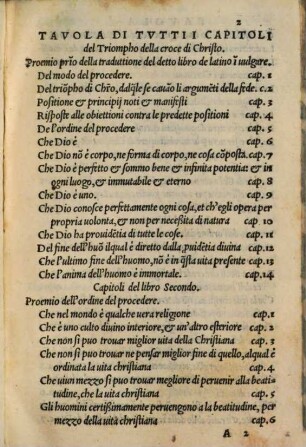 2
TAVOLA DI TVTTI I CAPITOLI
del Triompho della croce di Christo.
Proemio prĩo della traduttione del detto libro de latino ĩ uulgare.
Del modo del procedere. cap. 1
Del triõpho di Chr̃o, dalq̃le se cauão li argumẽti della fede. c. 2
Positione & principij noti & manifesti cap. 3
Risposte alle obiettioni contra le predette positioni cap. 4
De l'ordine del procedere cap. 5
Che Dio è. cap. 6
Che Dio nõ è corpo, ne forma di corpo, ne cosa cõposta. cap. 7
Che Dio è perfetto & sommo bene & infinita potentia: & in
ogni luogo, & immutabile & eterno cap. 8
Che Dio è uno. cap. 9
Che Dio conosce perfettamente ogni cosa, et ch'egli opera per
propria uolonta, & non per necessita di natura cap. 10
Che Dio ha prouidẽtia di tutte le cose. cap. 11
Del fine dell'huõ ilqual è diretto dalla ꝓuidẽtia diuina cap. 12
Che l'ultimo fine dell'huomo, nõ è in q̃sta uita presente cap. 13
Che l'anima dell'huomo è immortale. cap. 14
Capitoli del libro Secondo.
Proemio dell'ordine del procedere.
Che nel mondo è qualche uera religione cap. 1
Che è uno culto diuino interiore, & un'altro esteriore cap. 2
Che non si puo trouar miglior uita della Christiana cap. 3
Che non si puo trouar ne pensar miglior fine di quello, alqual è
ordinata la uita christiana cap. 4
Che niun mezzo si puo trouar megliore di peruenir alla beati-
tudine, che la uita christiana cap. 5
Gli huomini certissimamente peruengono a la beatitudine, per
mezzo della uita christiana cap. 6
A 2